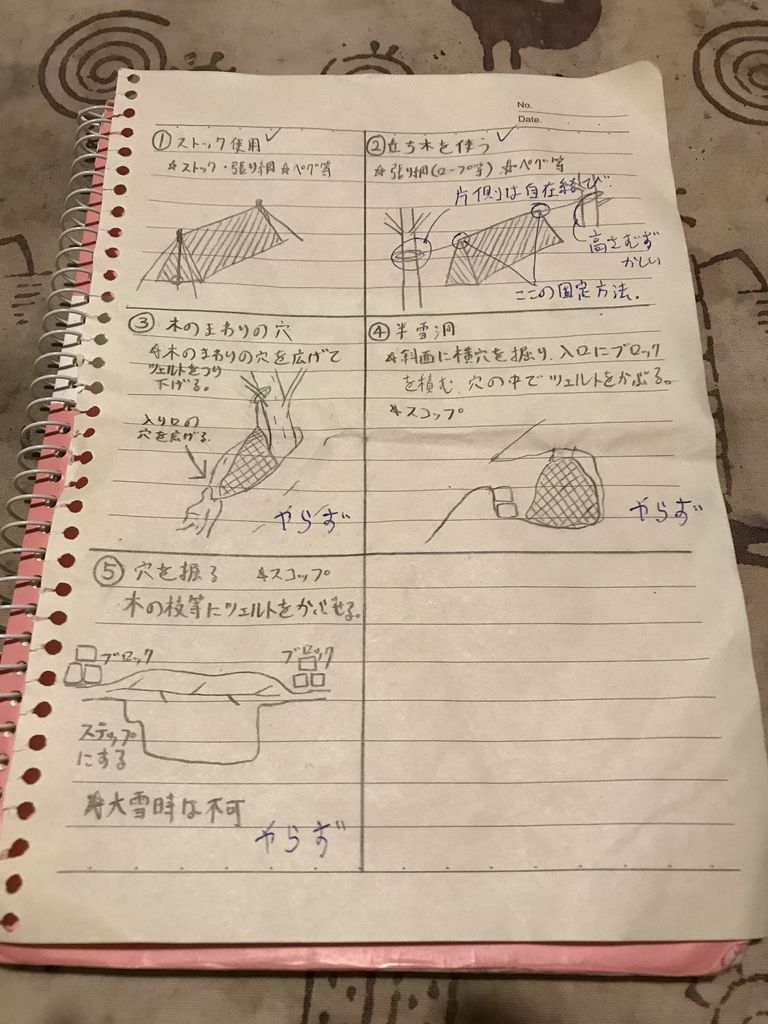 No.
Date.
① ストック使用 ✓
☆ストック・張り綱 ☆ペグ等
② 立ち木を使う ✓
☆張り綱(ロープ等) ☆ペグ等
片側は自在結び
高さむずかしい
ここの固定方法.
③ 木のまわりの穴
☆木のまわりの穴を広げて
ツェルトをつり
下げる。
入り口の
穴を広げる
やらず
④ 半雪洞
☆斜面に横穴を掘り、入口にブロック
を積む. 穴の中でツェルトをかぶる。
☆スコップ
やらず
⑤ 穴を掘る ☆スコップ
木の枝等にツェルトをかぶせる。
ブロック
ブロック
ステップ
にする
大雪時は不可
やらず